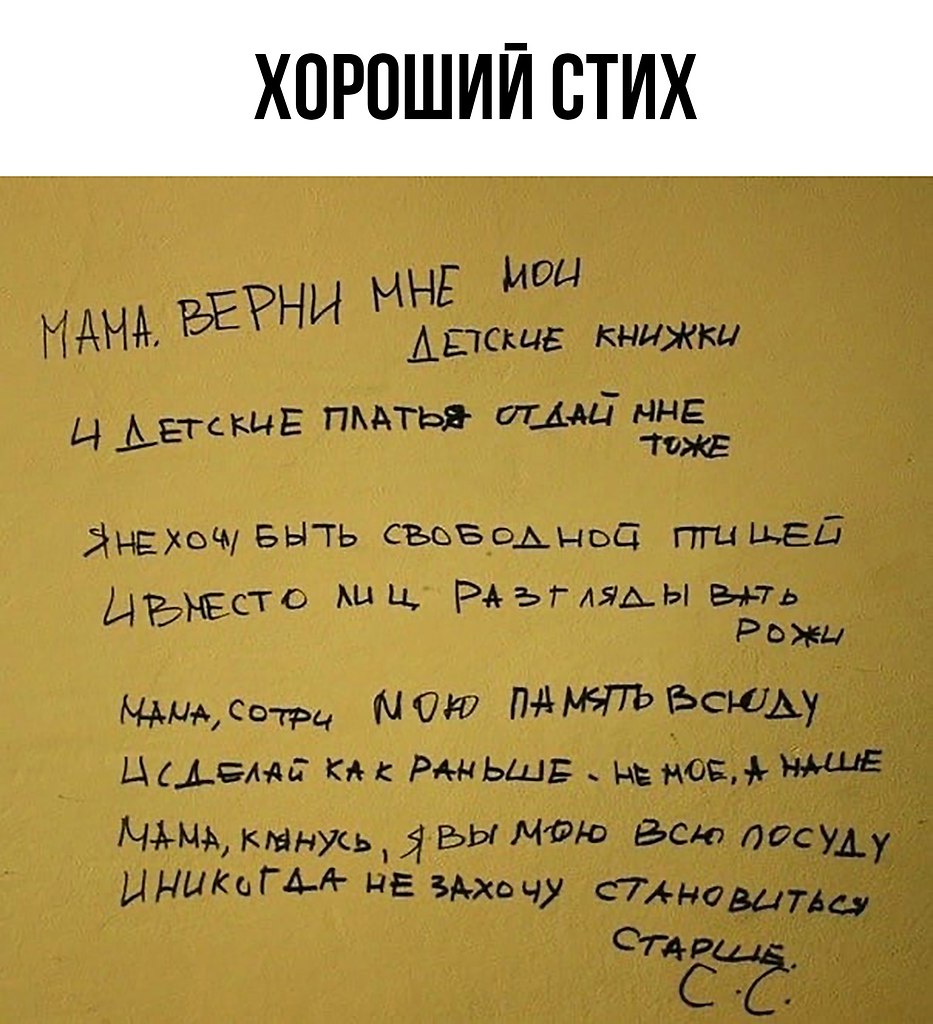 ХОРОШИЙ СТИХ
МАМА, ВЕРНИ МНЕ МОИ
ДЕТСКИЕ КНИЖКИ
И ДЕТСКИЕ ПЛАТЬЯ ОТДАЙ МНЕ
ТОЖЕ
Я НЕ ХОЧУ БЫТЬ СВОБОДНОЙ ПТИЦЕЙ
И ВМЕСТО ЛИЦ РАЗГЛЯДЫВАТЬ
РОЖИ
МАМА, СОТРИ МОЮ ПАМЯТЬ ВСЮДУ
И СДЕЛАЙ КАК РАНЬШЕ - НЕ МОЕ, А НАШЕ
МАМА, КЛЯНУСЬ, Я ВЫМОЮ ВСЮ ПОСУДУ
И НИКОГДА НЕ ЗАХОЧУ СТАНОВИТЬСЯ
СТАРШЕ.
С.С.